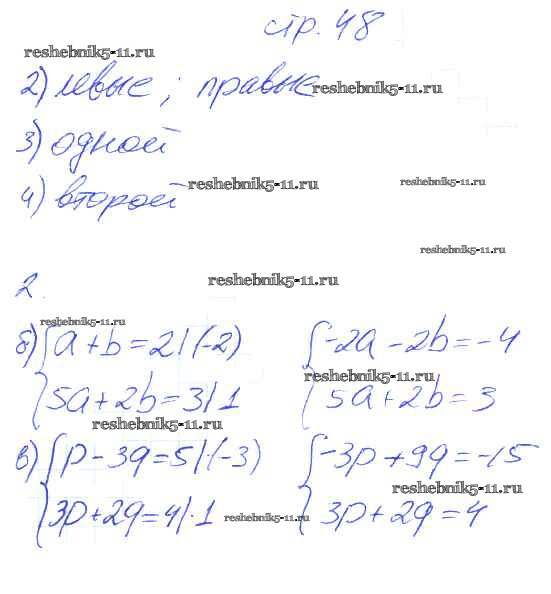 стр. 48
reshebnik5-11.ru
2) левые; правые reshebnik5-11.ru
3) одной
4) второй reshebnik5-11.ru reshebnik5-11.ru
reshebnik5-11.ru
2. reshebnik5-11.ru
reshebnik5-11.ru
б) { a + b = 2 | (-2) { -2a - 2b = -4
reshebnik5-11.ru
5a + 2b = 3 | 1 5a + 2b = 3
reshebnik5-11.ru
в) { p - 3q = 5 | · (-3) { -3p + 9q = -15
reshebnik5-11.ru
3p + 2q = 4 | · 1 reshebnik5-11.ru 3p + 2q = 4